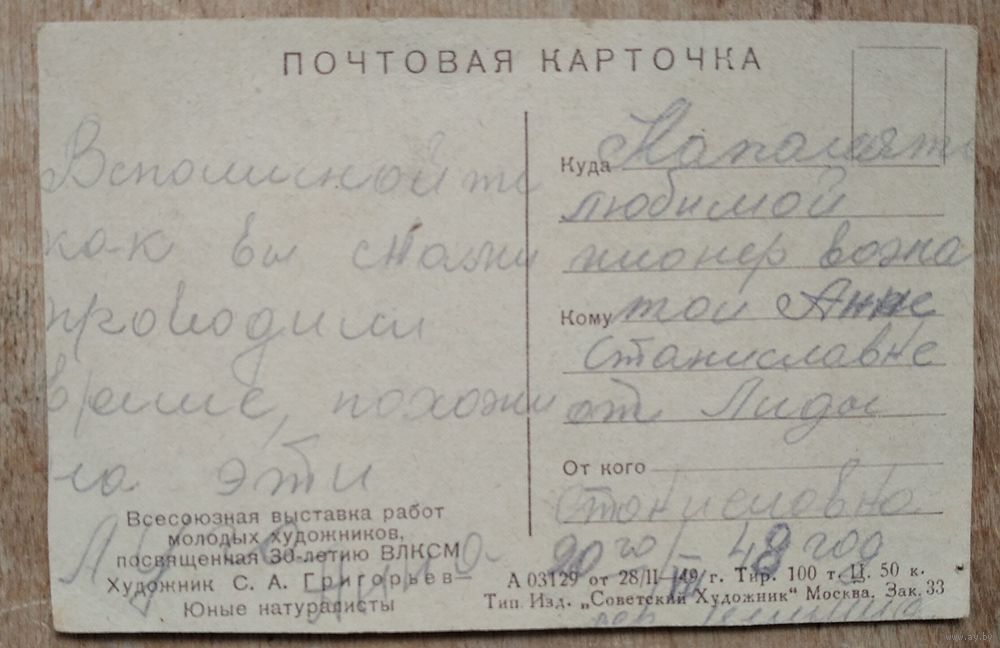 ПОЧТОВАЯ КАРТОЧКА
Вспоминайте
как вы
проводили
время, похожи
на эти
Всесоюзная выставка работ
молодых художников,
посвященная 30-летию ВЛКСМ
Художник С. А. Григорьев—
Юные натуралисты
Куда На память
любимой
пионер вожа
Кому той Анне
Станиславне
от Лиды
От кого
Станиславна
20го/III 49 год
А 03129 от 28/II—49 г. Тир. 100 т. Ц. 50 к.
Тип. Изд. „Советский Художник" Москва. Зак. 33
www.ay.by